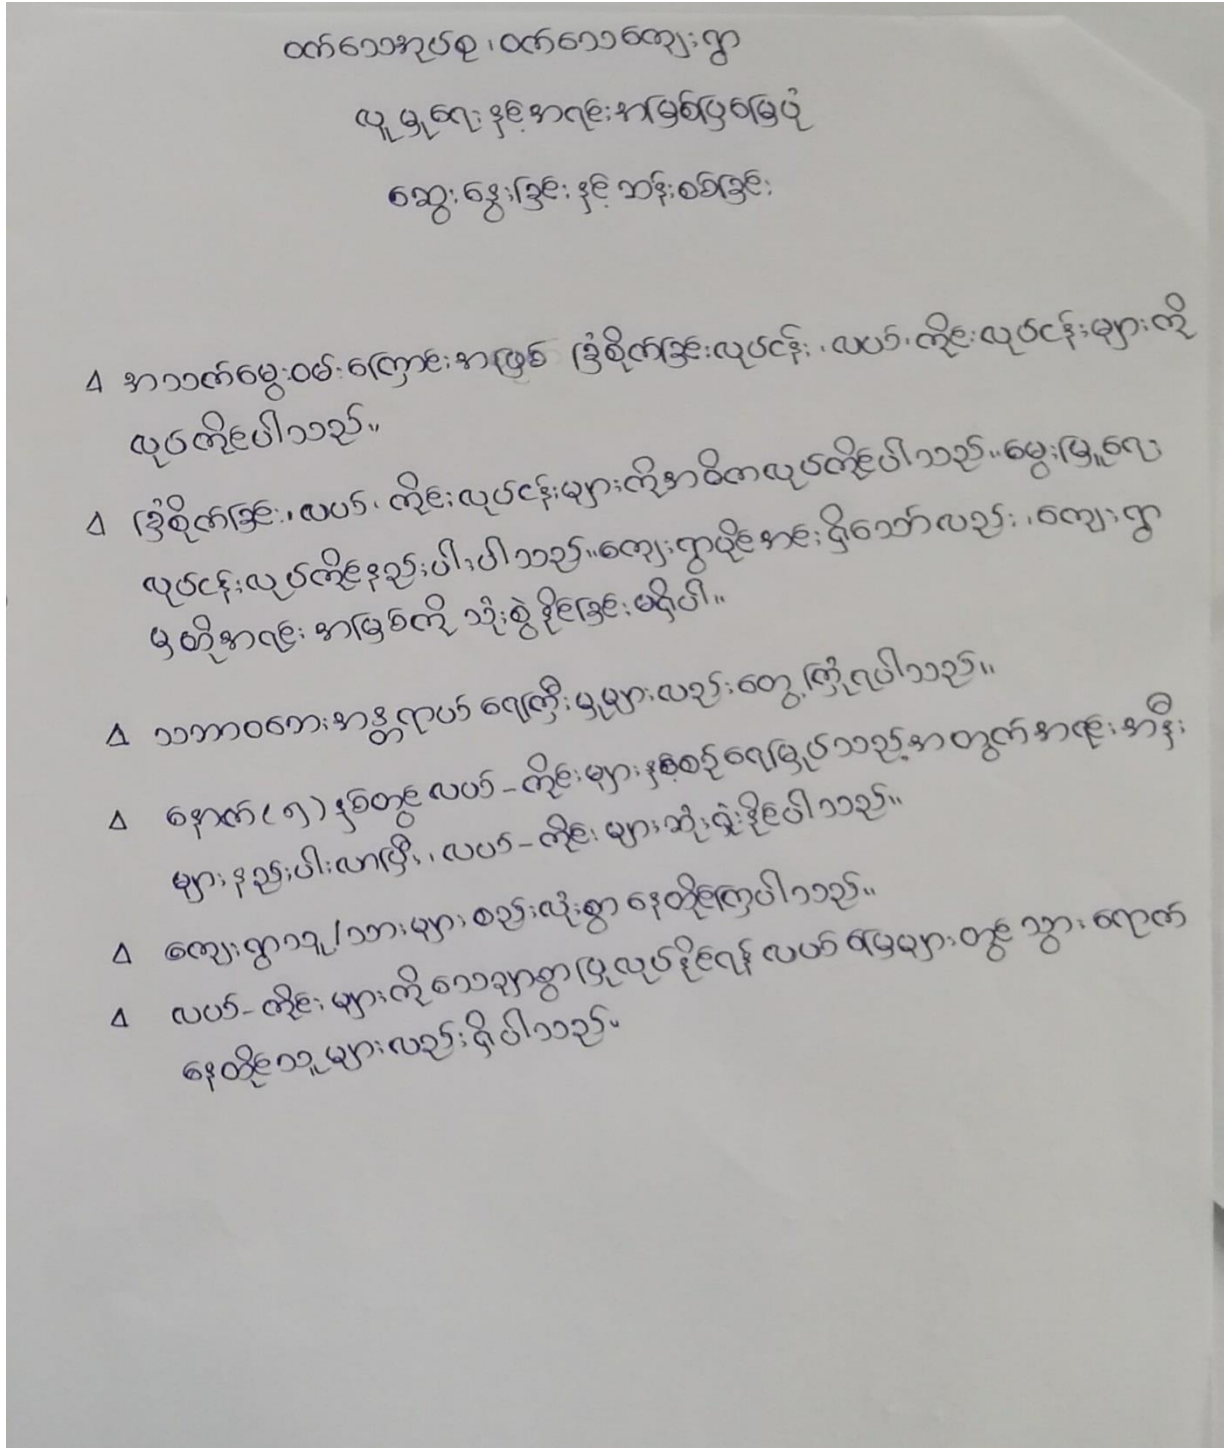 ဝက်သေအုပ်စု ၊ ဝက်သေကျေးရွာ
လူမှုရေးနှင့်အရင်းအမြစ်ပြမြေပုံ
ဆွေးနွေးခြင်းနှင့် ဆန်းစစ်ခြင်း
∆ အသက်မွေးဝမ်းကြောင်းအဖြစ် ခြံစိုက်ခြင်းလုပ်ငန်း ၊ လယ်၊ ကိုင်းလုပ်ငန်းများကို
လုပ်ကိုင်ပါသည်။
∆ ခြံစိုက်ခြင်း ၊ လယ်၊ ကိုင်းလုပ်ငန်းများကိုအဓိကလုပ်ကိုင်ပါသည်။ မွေးမြူရေး
လုပ်ငန်းလုပ်ကိုင်နည်းပါးပါသည်။ ကျေးရွာပိုင်အင်းရှိသော်လည်း ၊ ကျေးရွာ
မှထိုအရင်းအမြစ်ကို သုံးစွဲနိုင်ခြင်းမရှိပါ။
∆ သဘာဝဘေးအန္တရာယ် ရေကြီးမှုများလည်းတွေ့ကြုံရပါသည်။
∆ နောက်(၅)နှစ်တွင် လယ်-ကိုင်းများနှစ်စဉ်ရေမြုပ်သည့်အတွက်အရင်းအနှီး
များနည်းပါးလာပြီး ၊ လယ်-ကိုင်းများဆုံးရှုံးနိုင်ပါသည်။
∆ ကျေးရွာသူ/သားများ စည်းလုံးစွာ နေထိုင်ကြပါသည်။
∆ လယ်-ကိုင်းများကိုသေချာစွာပြုလုပ်နိုင်ရန် လယ်မြေများတွင် သွားရောက်
နေထိုင်သူများလည်းရှိပါသည်။